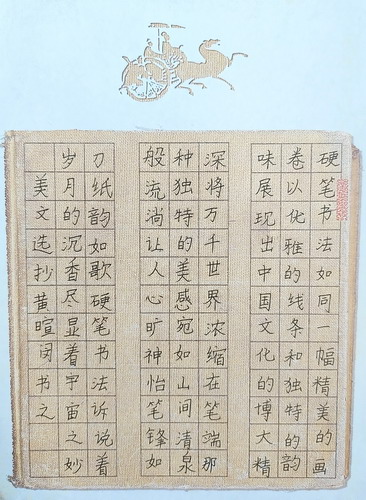 硬笔书法如同一幅精美的画
卷以化雅的线条和独特的韵
味展现出中国文化的博大精
深将万千世界浓缩在笔端那
种独特的美感宛如山间清泉
般流淌让人心旷神怡笔锋如
刀纸韵如歌硬笔书法诉说着
岁月的沉香尽显着宇宙之妙
美文选抄黄暄闵书之